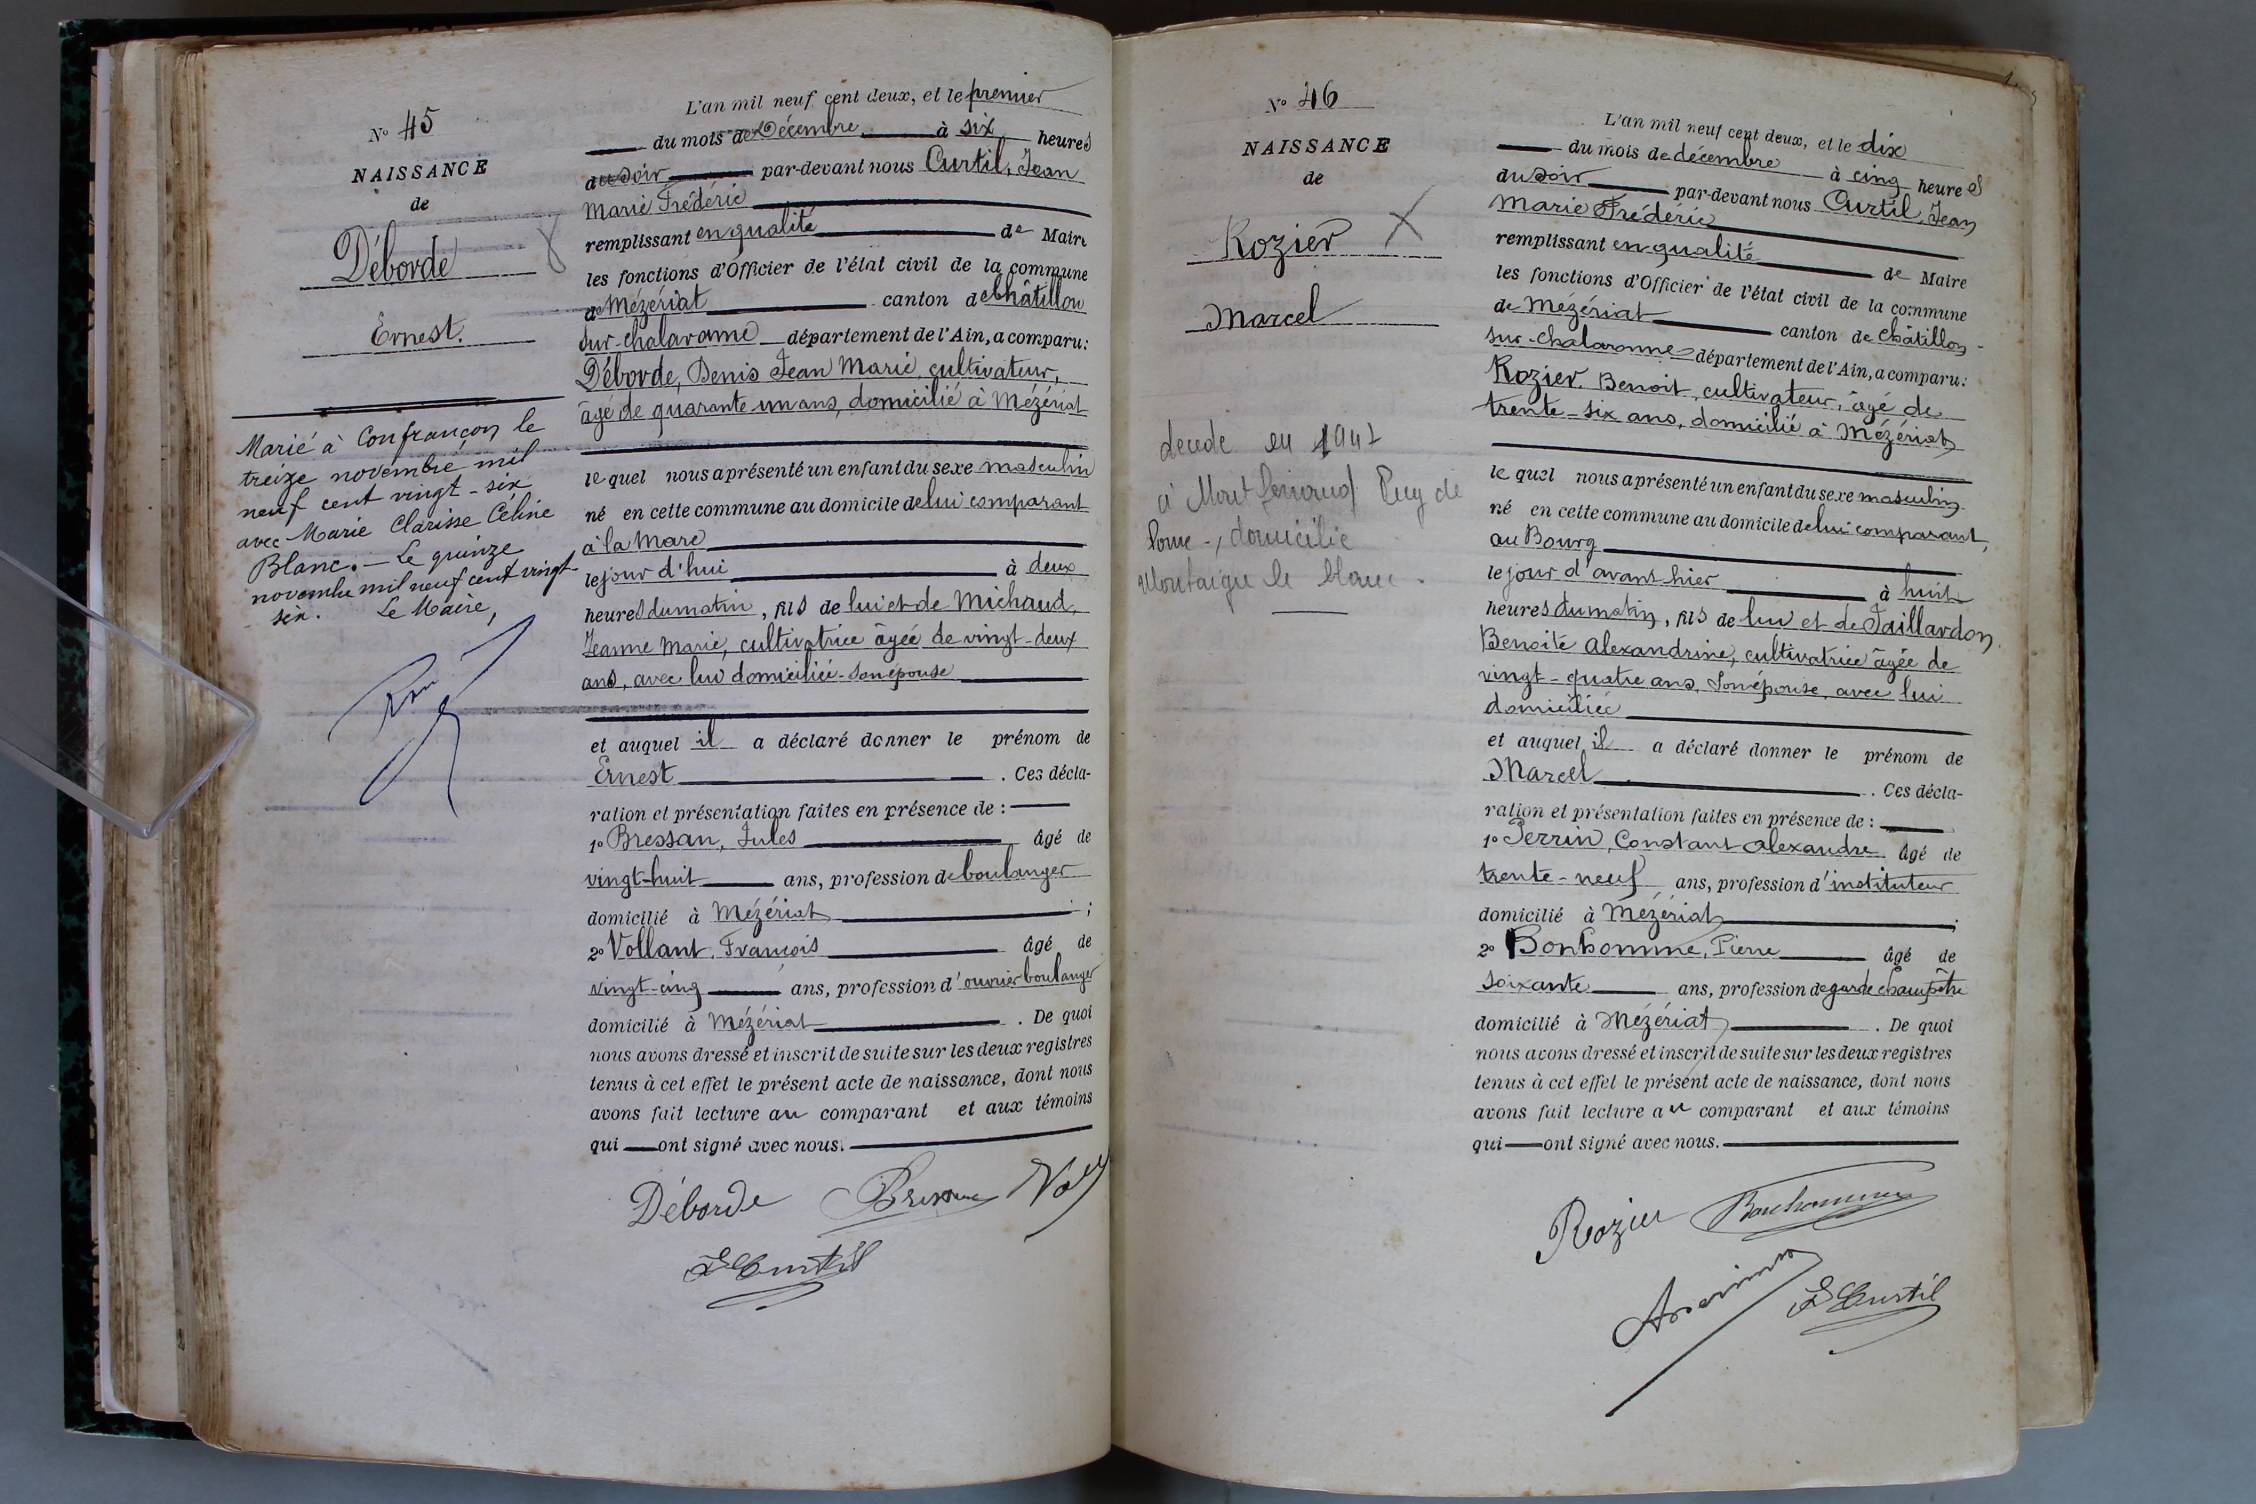 N° 45
NAISSANCE
de
Déborde
Ernest.
Marié à Confrançon le
treize novembre mil
neuf cent vingt-six
avec Marie Clarisse Céline
Blanc. — Le quinze
novembre mil neuf cent vingt-
six. Le Maire,
L'an mil neuf cent deux, et le premier
du mois de Décembre à six heures
du soir par-devant nous Curtil, Jean
Marie Frédéric
remplissant en qualité de Maire
les fonctions d'Officier de l'état civil de la commune
de Mézériat canton de Châtillon
sur-chalaronne département de l'Ain, a comparu:
Déborde, Denis Jean Marie, cultivateur,
âgé de quarante un ans, domicilié à Mézériat
lequel nous a présenté un enfant du sexe masculin
né en cette commune au domicile de lui comparant
à la Mare
le jour d'hui à deux
heures du matin, fils de lui et de Michaud,
Jeanne Marie, cultivatrice âgée de vingt-deux
ans, avec lui domiciliée - son épouse
et auquel il a déclaré donner le prénom de
Ernest . Ces décla-
ration et présentation faites en présence de :
1° Bressan, Jules âgé de
vingt-huit ans, profession de boulanger
domicilié à Mézériat ;
2° Vollant, François âgé de
vingt-cinq ans, profession d'ouvrier boulanger
domicilié à Mézériat . De quoi
nous avons dressé et inscrit de suite sur les deux registres
tenus à cet effet le présent acte de naissance, dont nous
avons fait lecture au comparant et aux témoins
qui ont signé avec nous.
Déborde Bressan
Curtil
N° 46
NAISSANCE
de
Rozier
Marcel
décédé en 1942
à Montferrand Puy de
Dome -, domicilié
Montaigu le blanc.
L'an mil neuf cent deux, et le dix
du mois de décembre à cinq heures
du soir par-devant nous Curtil, Jean
Marie Frédéric
remplissant en qualité de Maire
les fonctions d'Officier de l'état civil de la commune
de Mézériat canton de Châtillon-
sur-chalaronne département de l'Ain, a comparu:
Rozier Benoit, cultivateur, âgé de
trente-six ans, domicilié à Mézériat
lequel nous a présenté un enfant du sexe masculin
né en cette commune au domicile de lui comparant,
au Bourg
le jour d'avant hier à huit
heures du matin, fils de lui et de Taillardon
Benoite Alexandrine, cultivatrice âgée de
vingt-quatre ans, son épouse, avec lui
domiciliée
et auquel il a déclaré donner le prénom de
Marcel . Ces décla-
ration et présentation faites en présence de :
1° Perrin, Constant Alexandre âgé de
trente-neuf ans, profession d'instituteur
domicilié à Mézériat ;
2° Bonhomme, Pierre âgé de
soixante ans, profession de garde champêtre
domicilié à Mézériat . De quoi
nous avons dressé et inscrit de suite sur les deux registres
tenus à cet effet le présent acte de naissance, dont nous
avons fait lecture au comparant et aux témoins
qui ont signé avec nous.
Rozier Bonhomme
Curtil